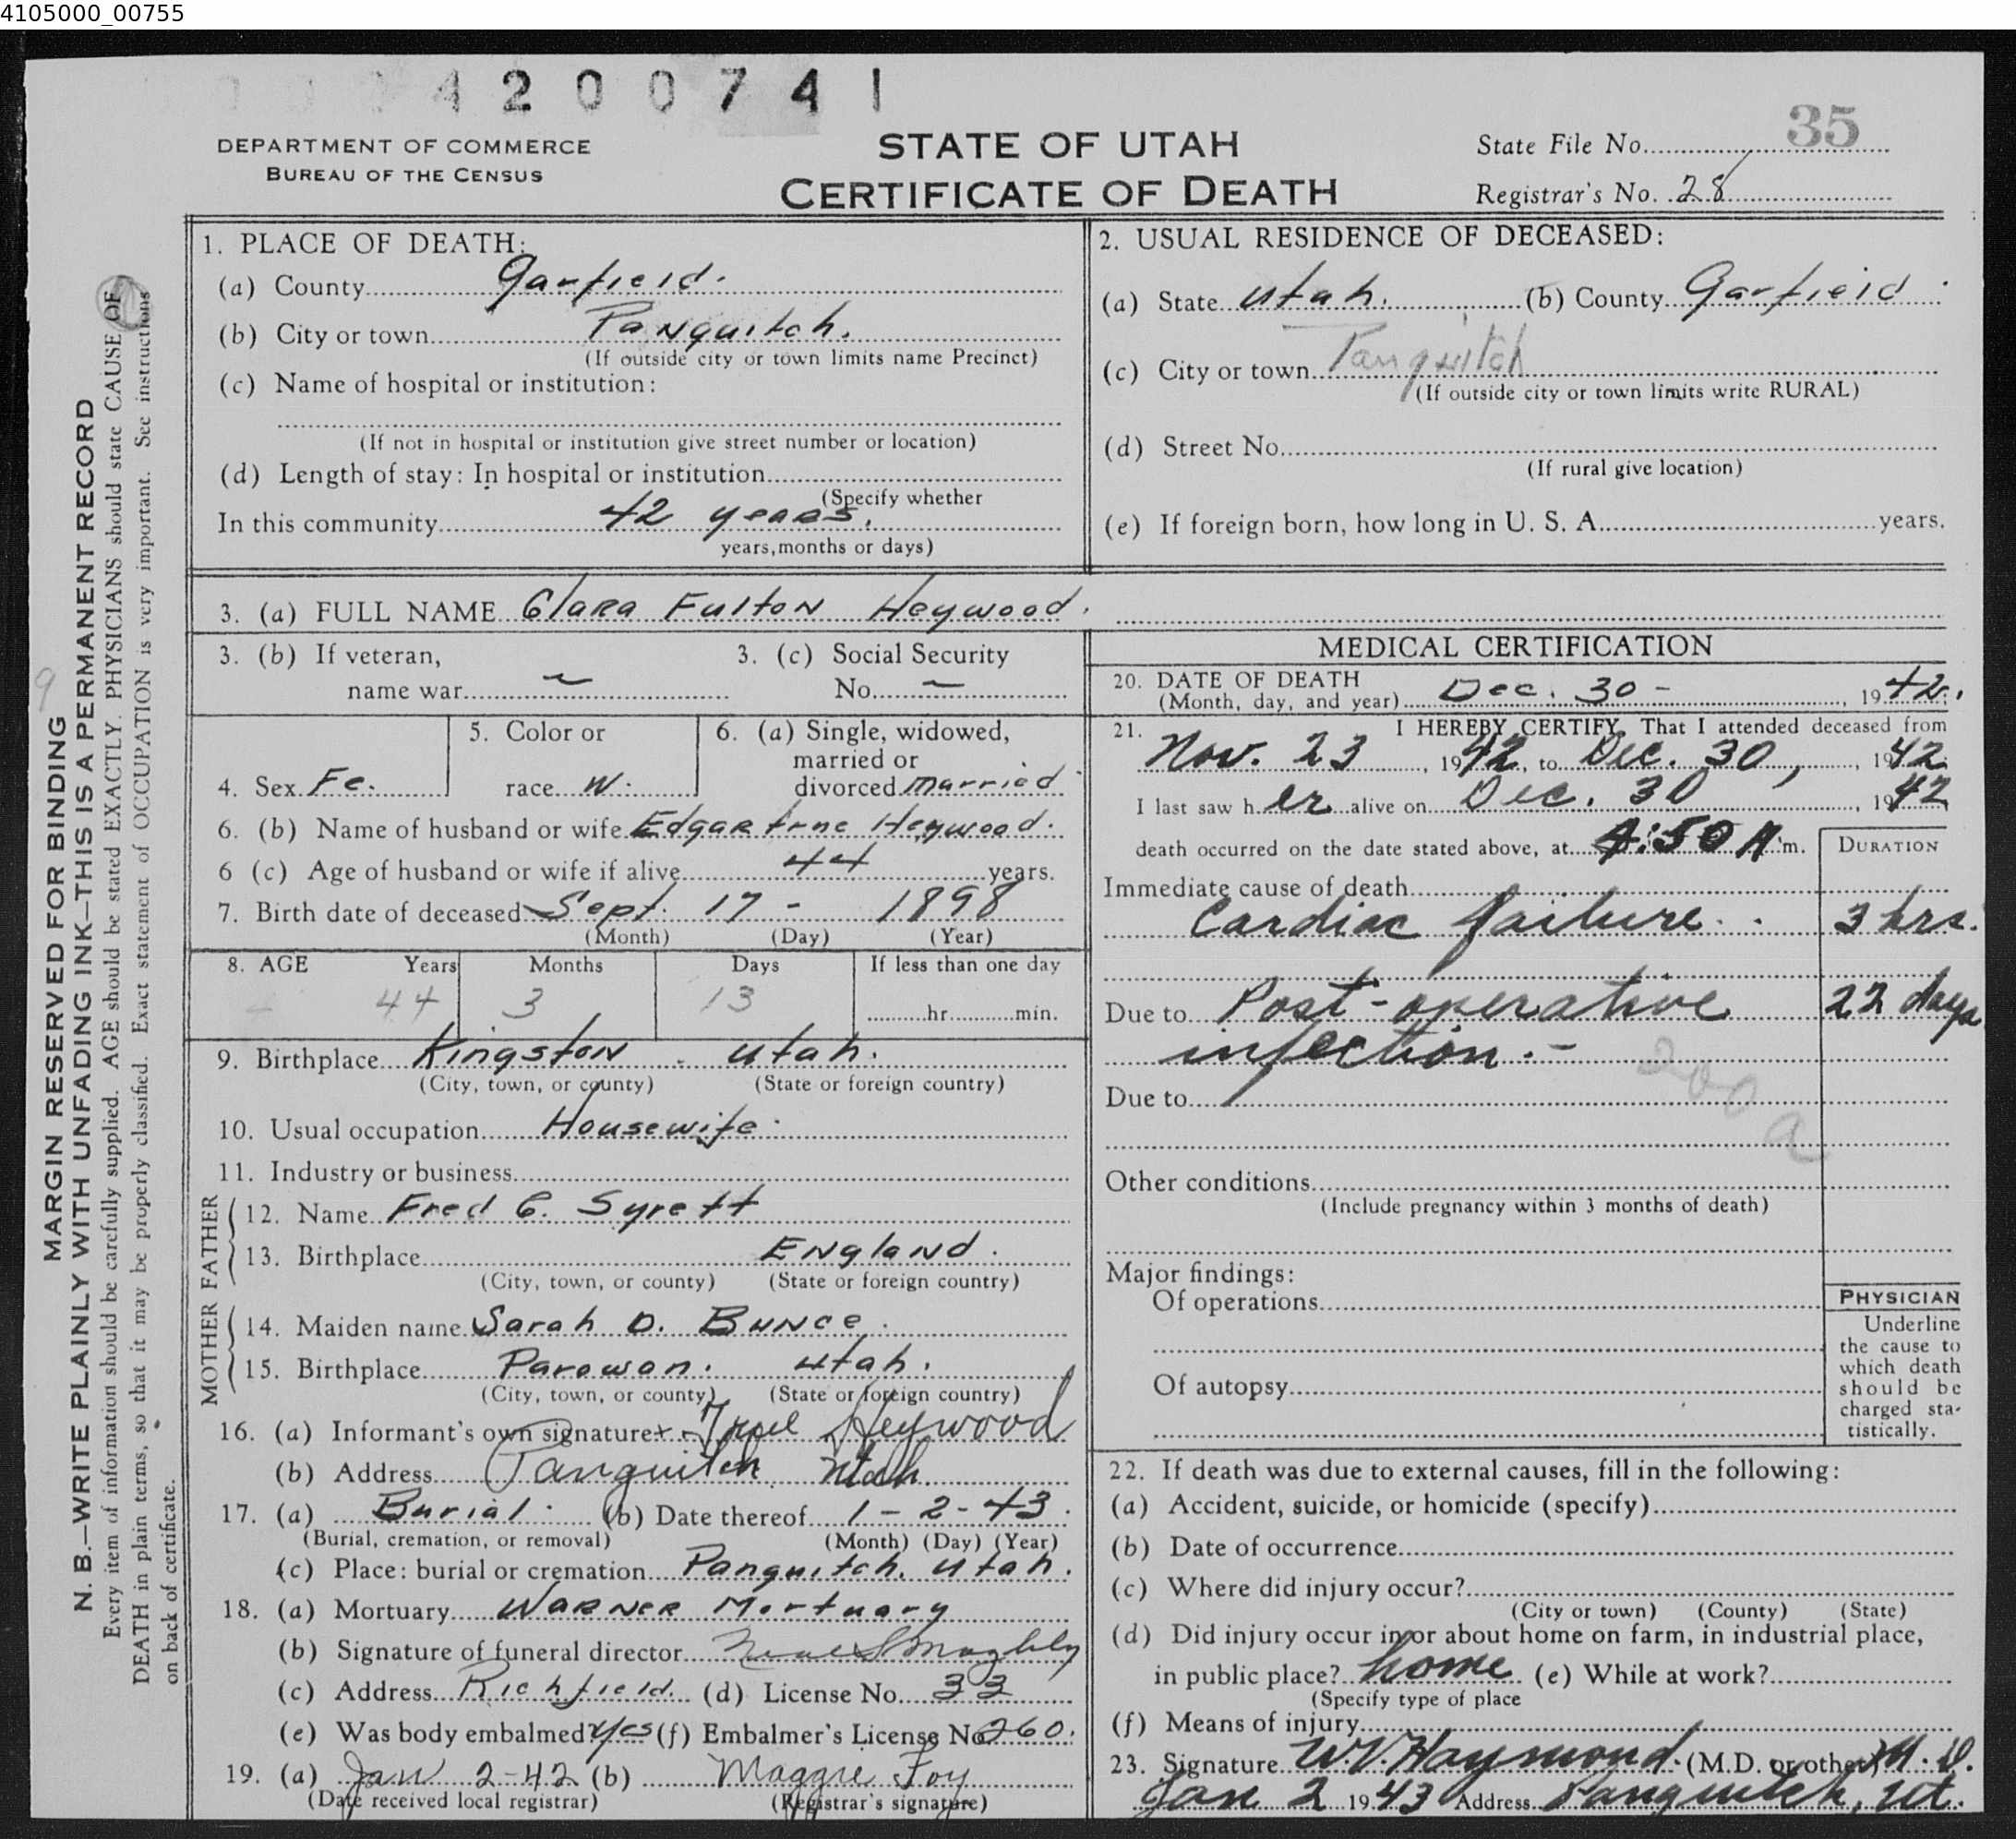 4105000_00755
4 2 0 0 7 4 1
DEPARTMENT OF COMMERCE
BUREAU OF THE CENSUS
STATE OF UTAH
CERTIFICATE OF DEATH
State File No. 35
Registrar's No. 28
MARGIN RESERVED FOR BINDING
N. B.—WRITE PLAINLY WITH UNFADING INK—THIS IS A PERMANENT RECORD
Every item of information should be carefully supplied. AGE should be stated EXACTLY. PHYSICIANS should state CAUSE OF
DEATH in plain terms, so that it may be properly classified. Exact statement of OCCUPATION is very important. See instructions
on back of certificate.
9
1. PLACE OF DEATH:
(a) County Garfield.
(b) City or town Panguitch.
(If outside city or town limits name Precinct)
(c) Name of hospital or institution:
(If not in hospital or institution give street number or location)
(d) Length of stay: In hospital or institution
(Specify whether
In this community 42 years.
years, months or days)
2. USUAL RESIDENCE OF DECEASED:
(a) State Utah. (b) County Garfield
(c) City or town Panguitch
(If outside city or town limits write RURAL)
(d) Street No.
(If rural give location)
(e) If foreign born, how long in U. S. A. years.
3. (a) FULL NAME Clara Fulton Heywood.
3. (b) If veteran,
name war —
3. (c) Social Security
No. —
4. Sex Fe.
5. Color or
race W.
6. (a) Single, widowed,
married or
divorced married
6. (b) Name of husband or wife Edgar Heywood.
6 (c) Age of husband or wife if alive 44 years.
7. Birth date of deceased Sept. 17 - 1898
(Month) (Day) (Year)
8. AGE Years Months Days If less than one day
44 3 13 hr. min.
9. Birthplace Kingston - Utah.
(City, town, or county) (State or foreign country)
10. Usual occupation Housewife
11. Industry or business
FATHER
12. Name Fred C. Syrett
13. Birthplace England.
(City, town, or county) (State or foreign country)
MOTHER
14. Maiden name Sarah D. Bunce.
15. Birthplace Parowan. Utah.
(City, town, or county) (State or foreign country)
16. (a) Informant's own signature Heywood
(b) Address Panguitch Utah
17. (a) Burial. (b) Date thereof 1 - 2 - 43
(Burial, cremation, or removal) (Month) (Day) (Year)
(c) Place: burial or cremation Panguitch, Utah.
18. (a) Mortuary Warner Mortuary
(b) Signature of funeral director
(c) Address Richfield. (d) License No. 33
(e) Was body embalmed Yes (f) Embalmer's License No. 260.
19. (a) Jan 2-42 (b) Maggie Foy
(Date received local registrar) (Registrar's signature)
MEDICAL CERTIFICATION
20. DATE OF DEATH
(Month, day, and year) Dec. 30 - , 1942.
21. I HEREBY CERTIFY, That I attended deceased from
Nov. 23, 1942, to Dec. 30, 1942
I last saw her alive on Dec. 30, 1942
death occurred on the date stated above, at 4:50 A m.
DURATION
Immediate cause of death
Cardiac failure 3 hrs.
Due to Post-operative 22 days
infection. -
200 a
Due to
Other conditions
(Include pregnancy within 3 months of death)
Major findings:
Of operations
Of autopsy
PHYSICIAN
Underline
the cause to
which death
should be
charged sta-
tistically.
22. If death was due to external causes, fill in the following:
(a) Accident, suicide, or homicide (specify)
(b) Date of occurrence
(c) Where did injury occur?
(City or town) (County) (State)
(d) Did injury occur in or about home on farm, in industrial place,
in public place? home (e) While at work?
(Specify type of place
(f) Means of injury
23. Signature W.V. Haymond (M.D. or other) M.D.
Jan 2 1943 Address Panguitch, Ut.